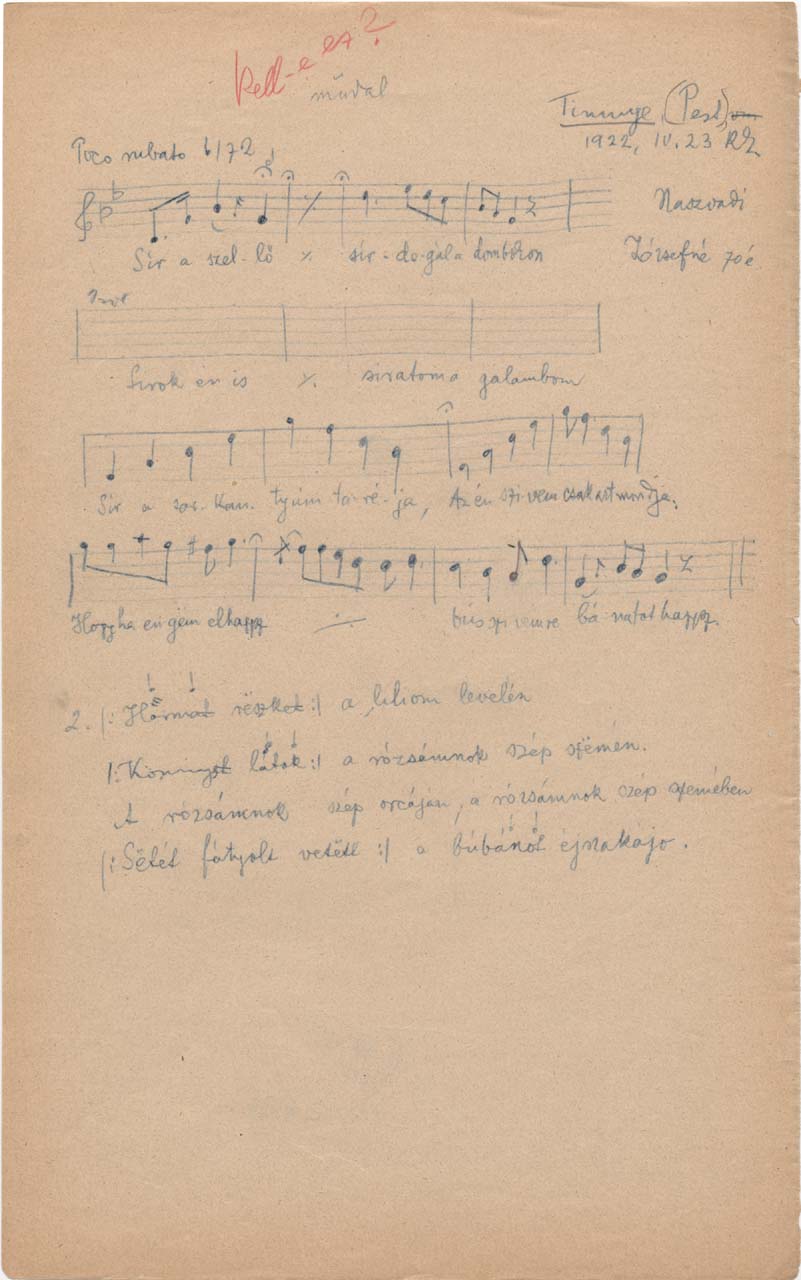 Kell-e ez?
műdal
Tinnye, (Pest)
1922, IV. 23 RZ
Poco rubato
Naszvadi
Józsefné 70é
Sír a szel-lő ٪ sír-do-gál a dombokon
Sirok én is ٪ siratom a galambom
Sír a sar-kan-tyúm ta-ré-ja, Az én szivem csak azt mondja,
Hogyha engem elhagysz ٪ bús szivemre bá-natot hagysz.
2. |: Harmat részket :| a liliom levelén
|: Könnyet látok :| a rózsámnok szép szëmén.
A rózsámnok szép orcáján, a rózsámnok szép szemében
|: Sëtét fátyolt vetëtt :| a búbánot éjszakájo.